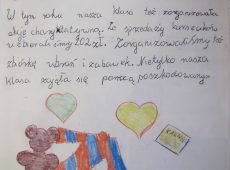 W tym roku nasza klasa też zorganizowała
akcję charytatywną. Ze sprzedaży
uzbieraliśmy 202 zł. Zorganizowaliśmy też
zbiórkę ubrań i zabawek. Nietylko nasza
klasa zajęła się pomocą poszkodowanym